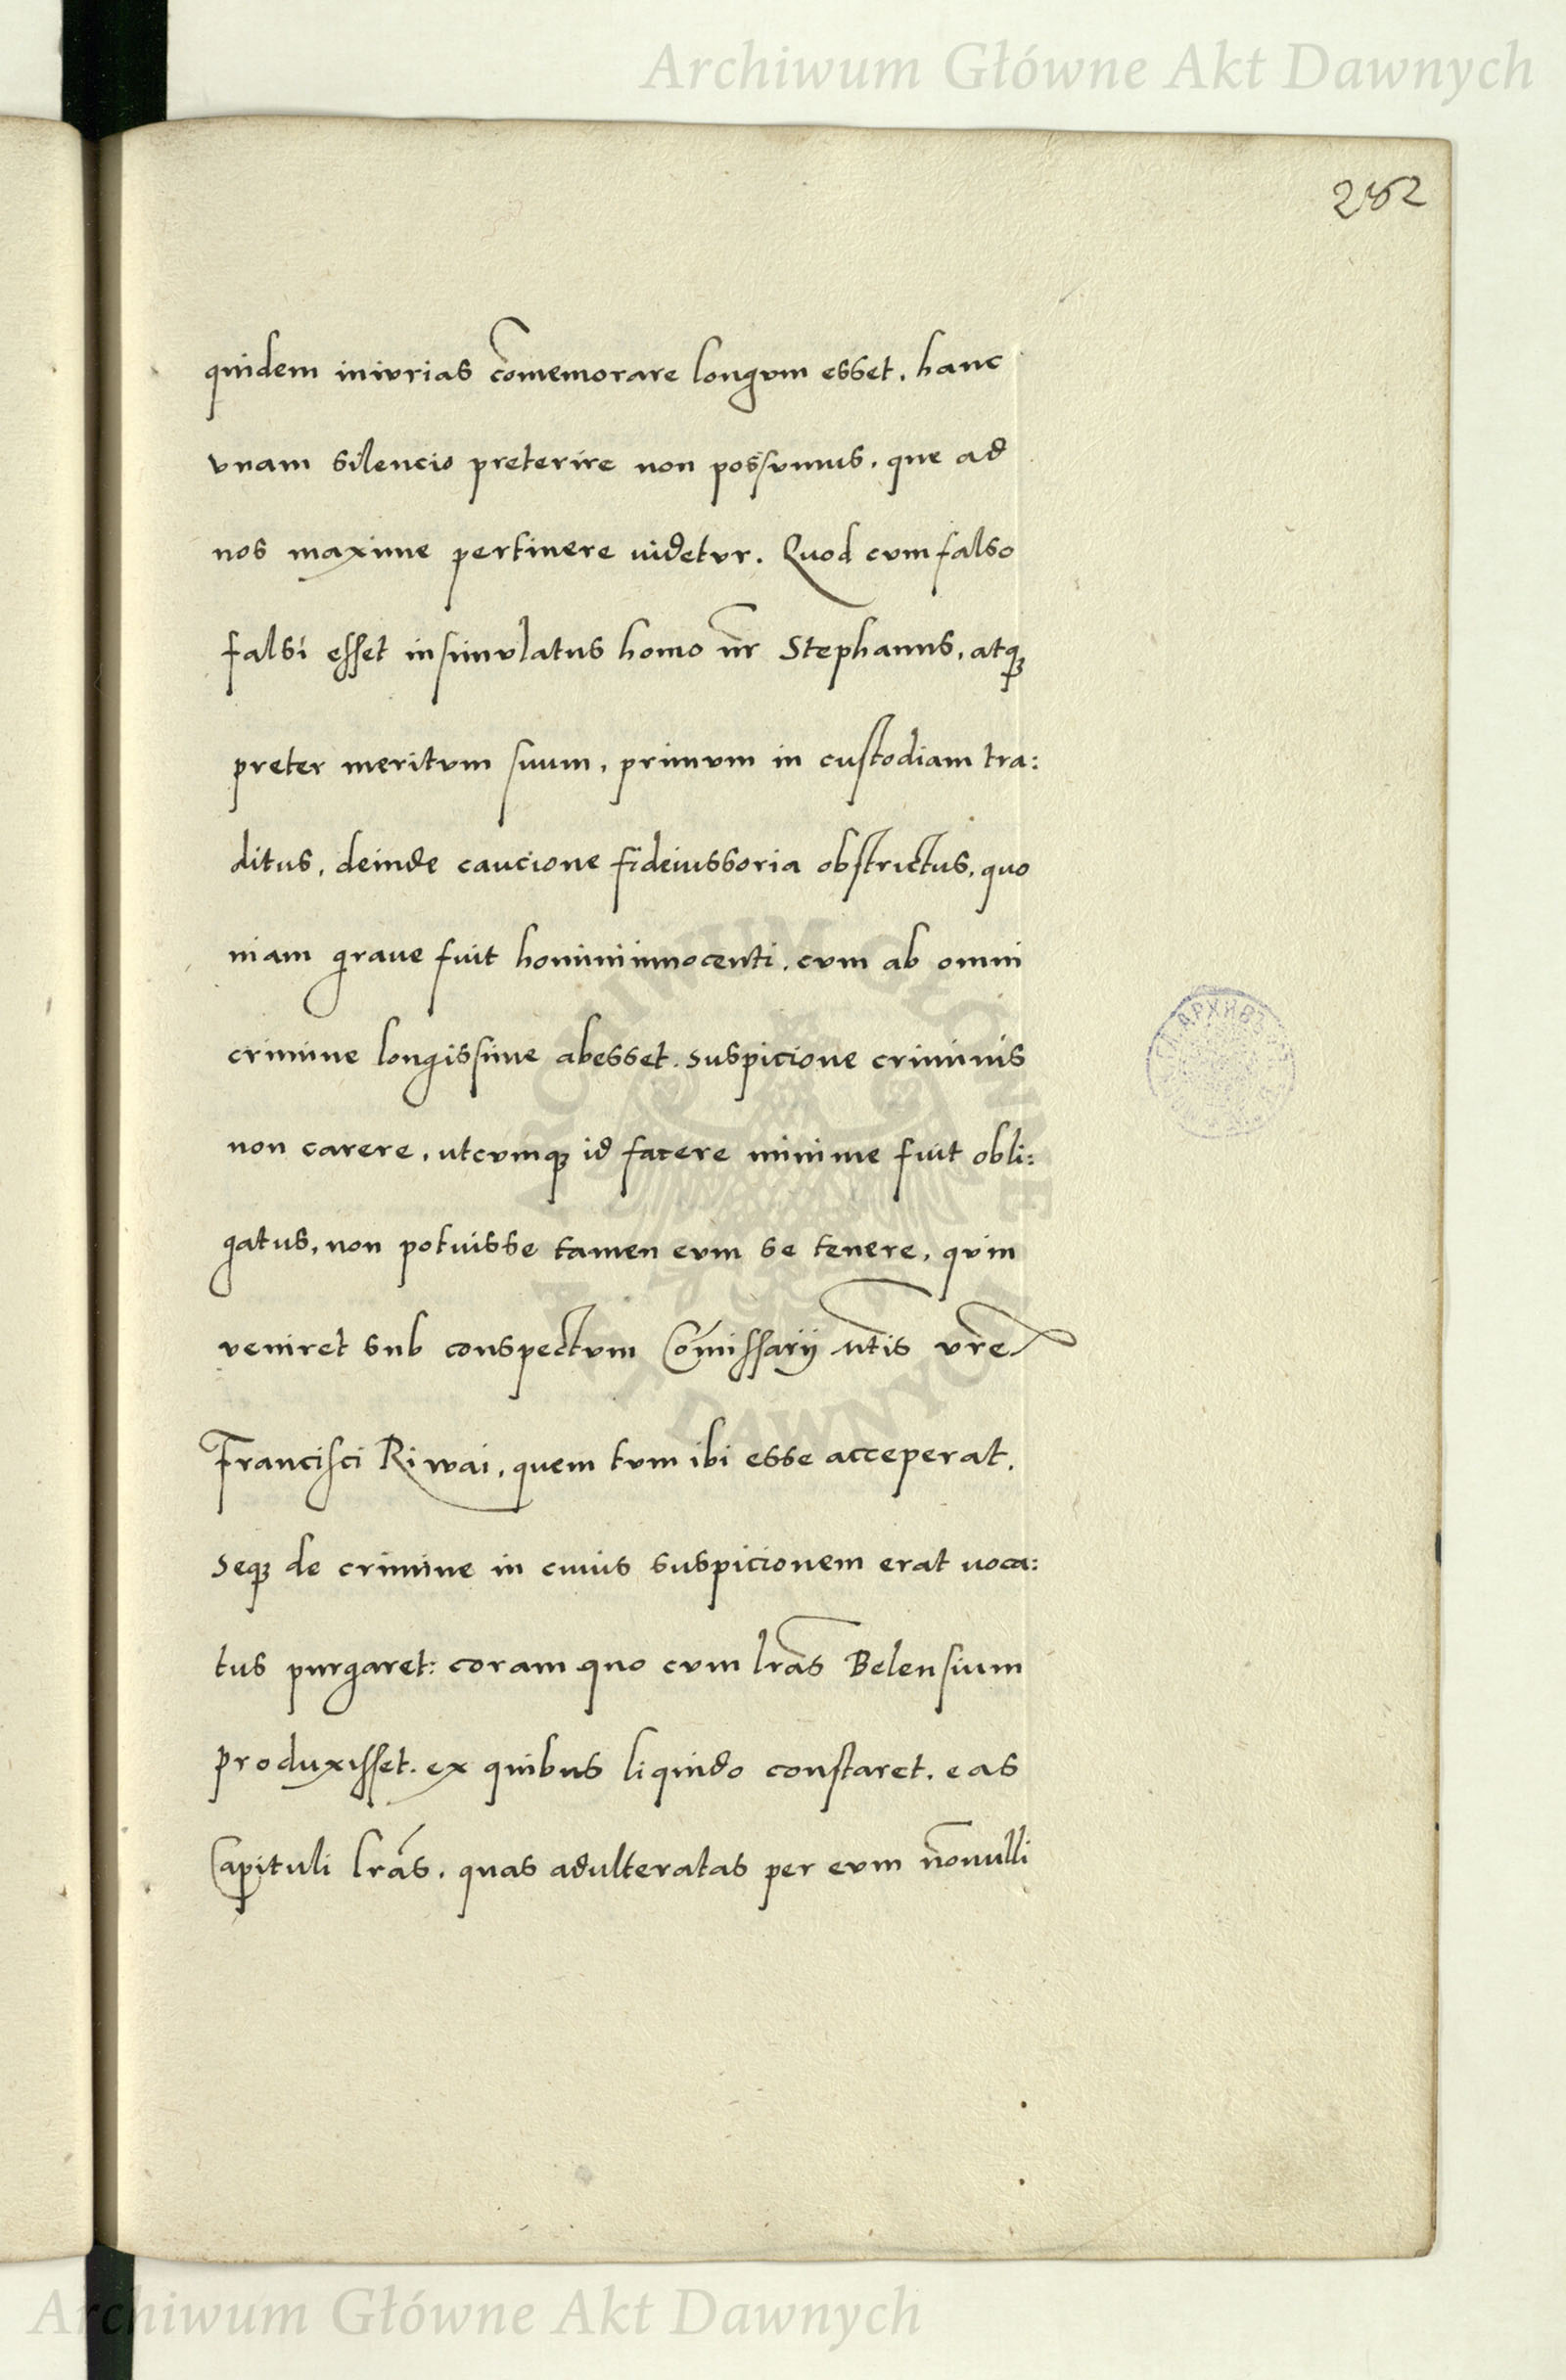 Archiwum Główne Akt Dawnych
282
quidem iniurias cōmemorare longvm esset, hanc
vnam silencio preterire non possvmus, que ad
nos maxime pertinere videtvr. Quod cvm falso
falsi esset insimvlatus homo nr̄ Stephanus, atqꝫ
preter meritvm suum, primvm in custodiam tra:
ditus, deinde caucione fideiussoria obstrictus, quo
niam graue fuit homini innocenti, cvm ab omni
crimine longissime abesset, suspicione criminis
non carere, utcvmqꝫ id facere minime fuit obli:
gatus, non potuisse tamen evm se tenere, qvin
veniret sub conspectvm Cōmissarij Mt̄is vr̄e
Francisci Riwai, quem tvm ibi esse acceperat,
Seqꝫ de crimine in cuius suspicionem erat uoca:
tus purgaret: coram quo cvm lr̄as Belensium
produxisset, ex quibus liquido constaret, eas
Capituli lr̄as, quas adulteratas per evm nōnulli
ARCHIWUM GŁÓWNE
AKT DAWNYCH
Archiwum Główne Akt Dawnych